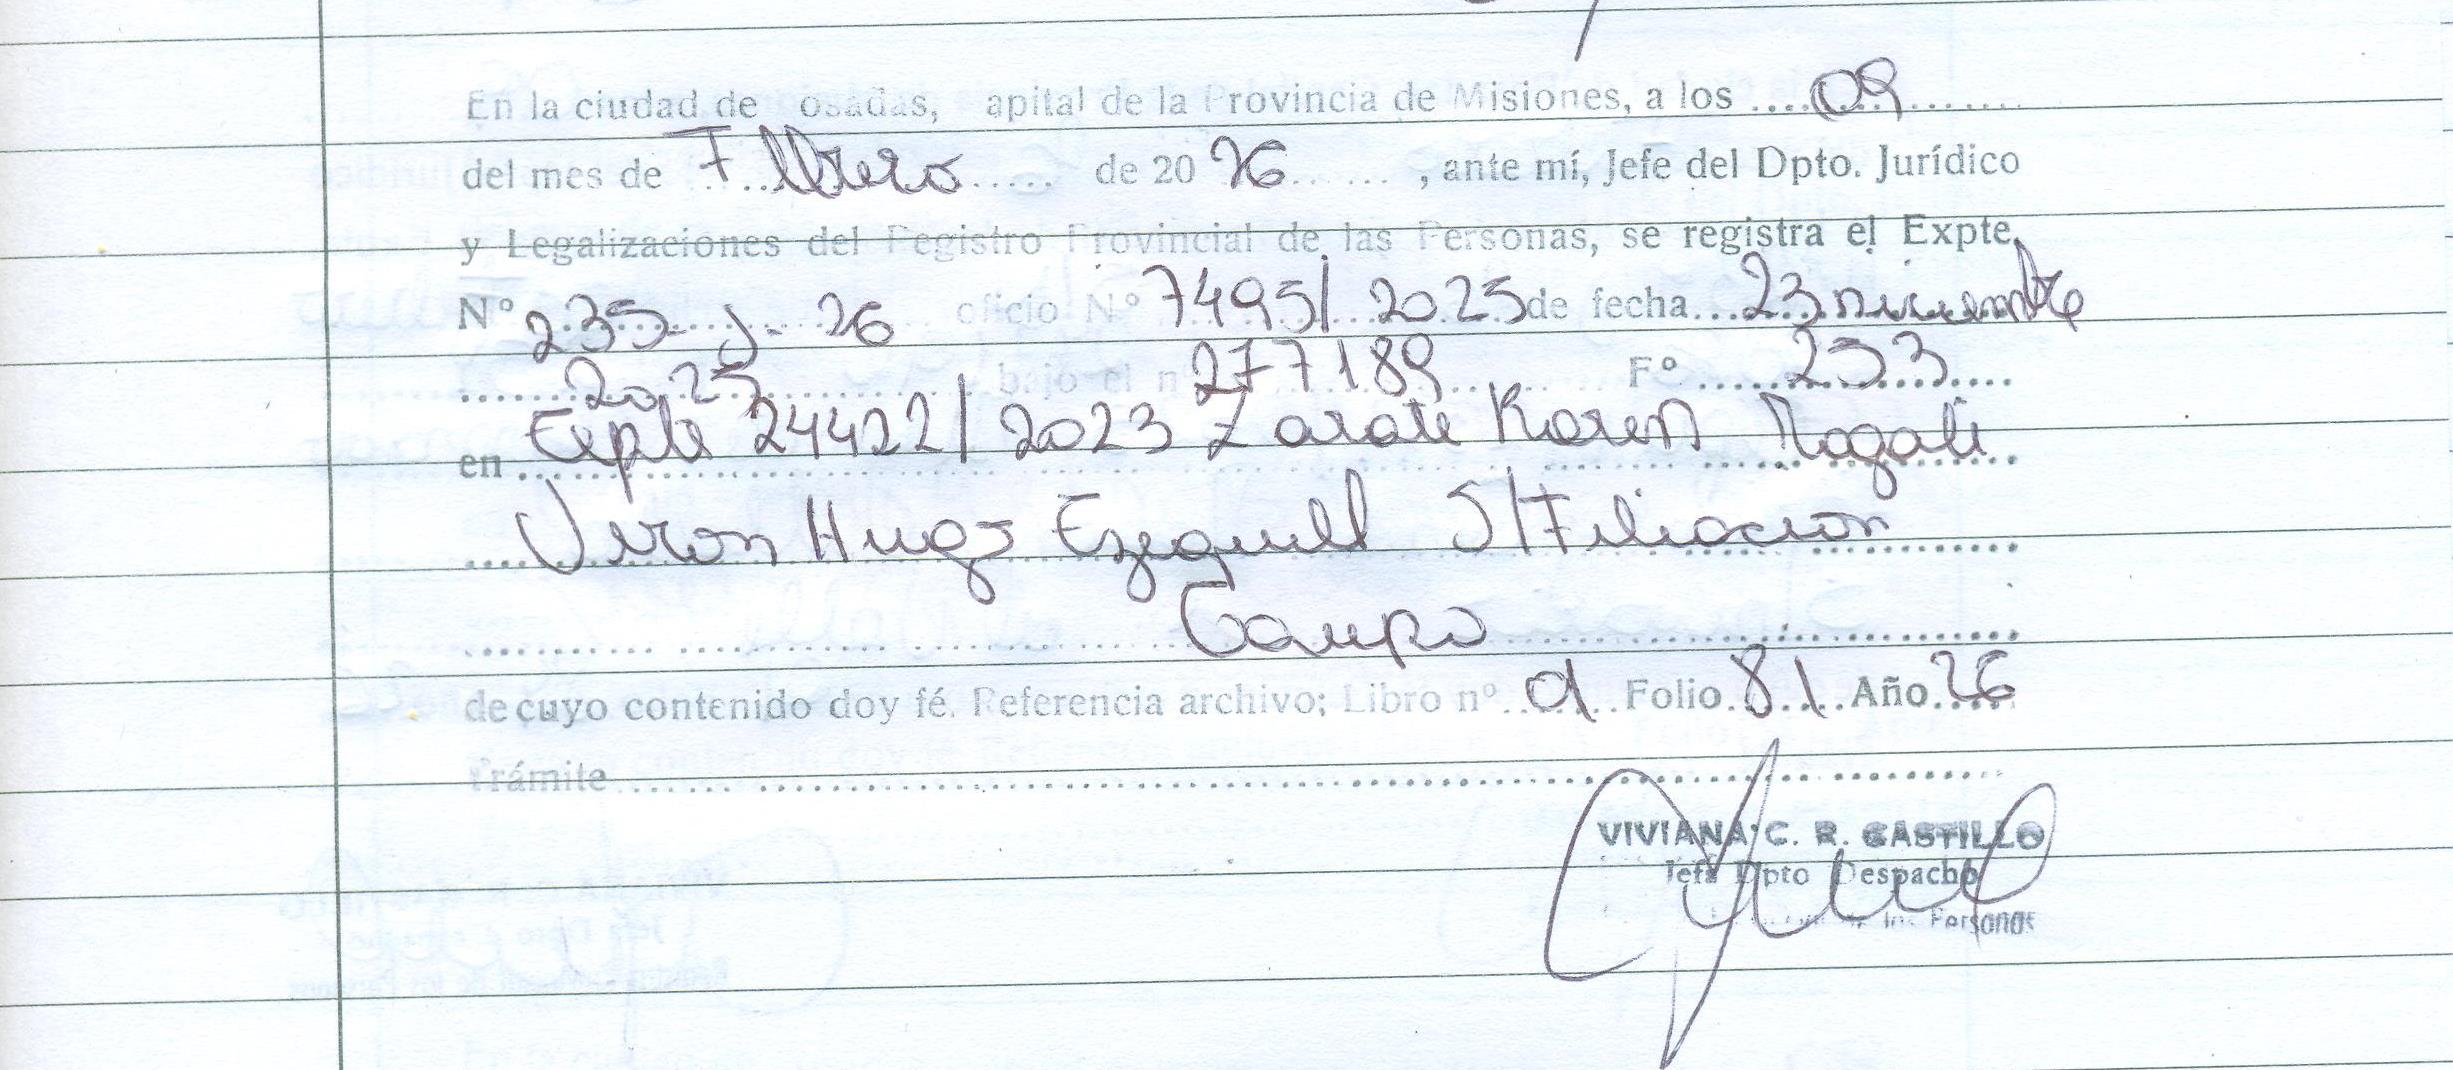 En la ciudad de osadas, apital de la Provincia de Misiones, a los 09
del mes de Febrero de 20 26, ante mí, Jefe del Dpto. Jurídico
y Legalizaciones del Registro Provincial de las Personas, se registra el Expte.
N° 235-J-26 oficio N° 7495/2025 de fecha 23 Diciembre
2025 bajo el n° 277189 F° 253
en Expte 24422/2023 Zarate Karen Magali
Veron Hugo Ezequiel S/Filiacion
de cuyo contenido doy fé. Referencia archivo; Libro n° 01 Folio 81 Año 26
Trámite
VIVIANA C. R. CASTILLO
Jefa Dpto Despacho
de las Personas